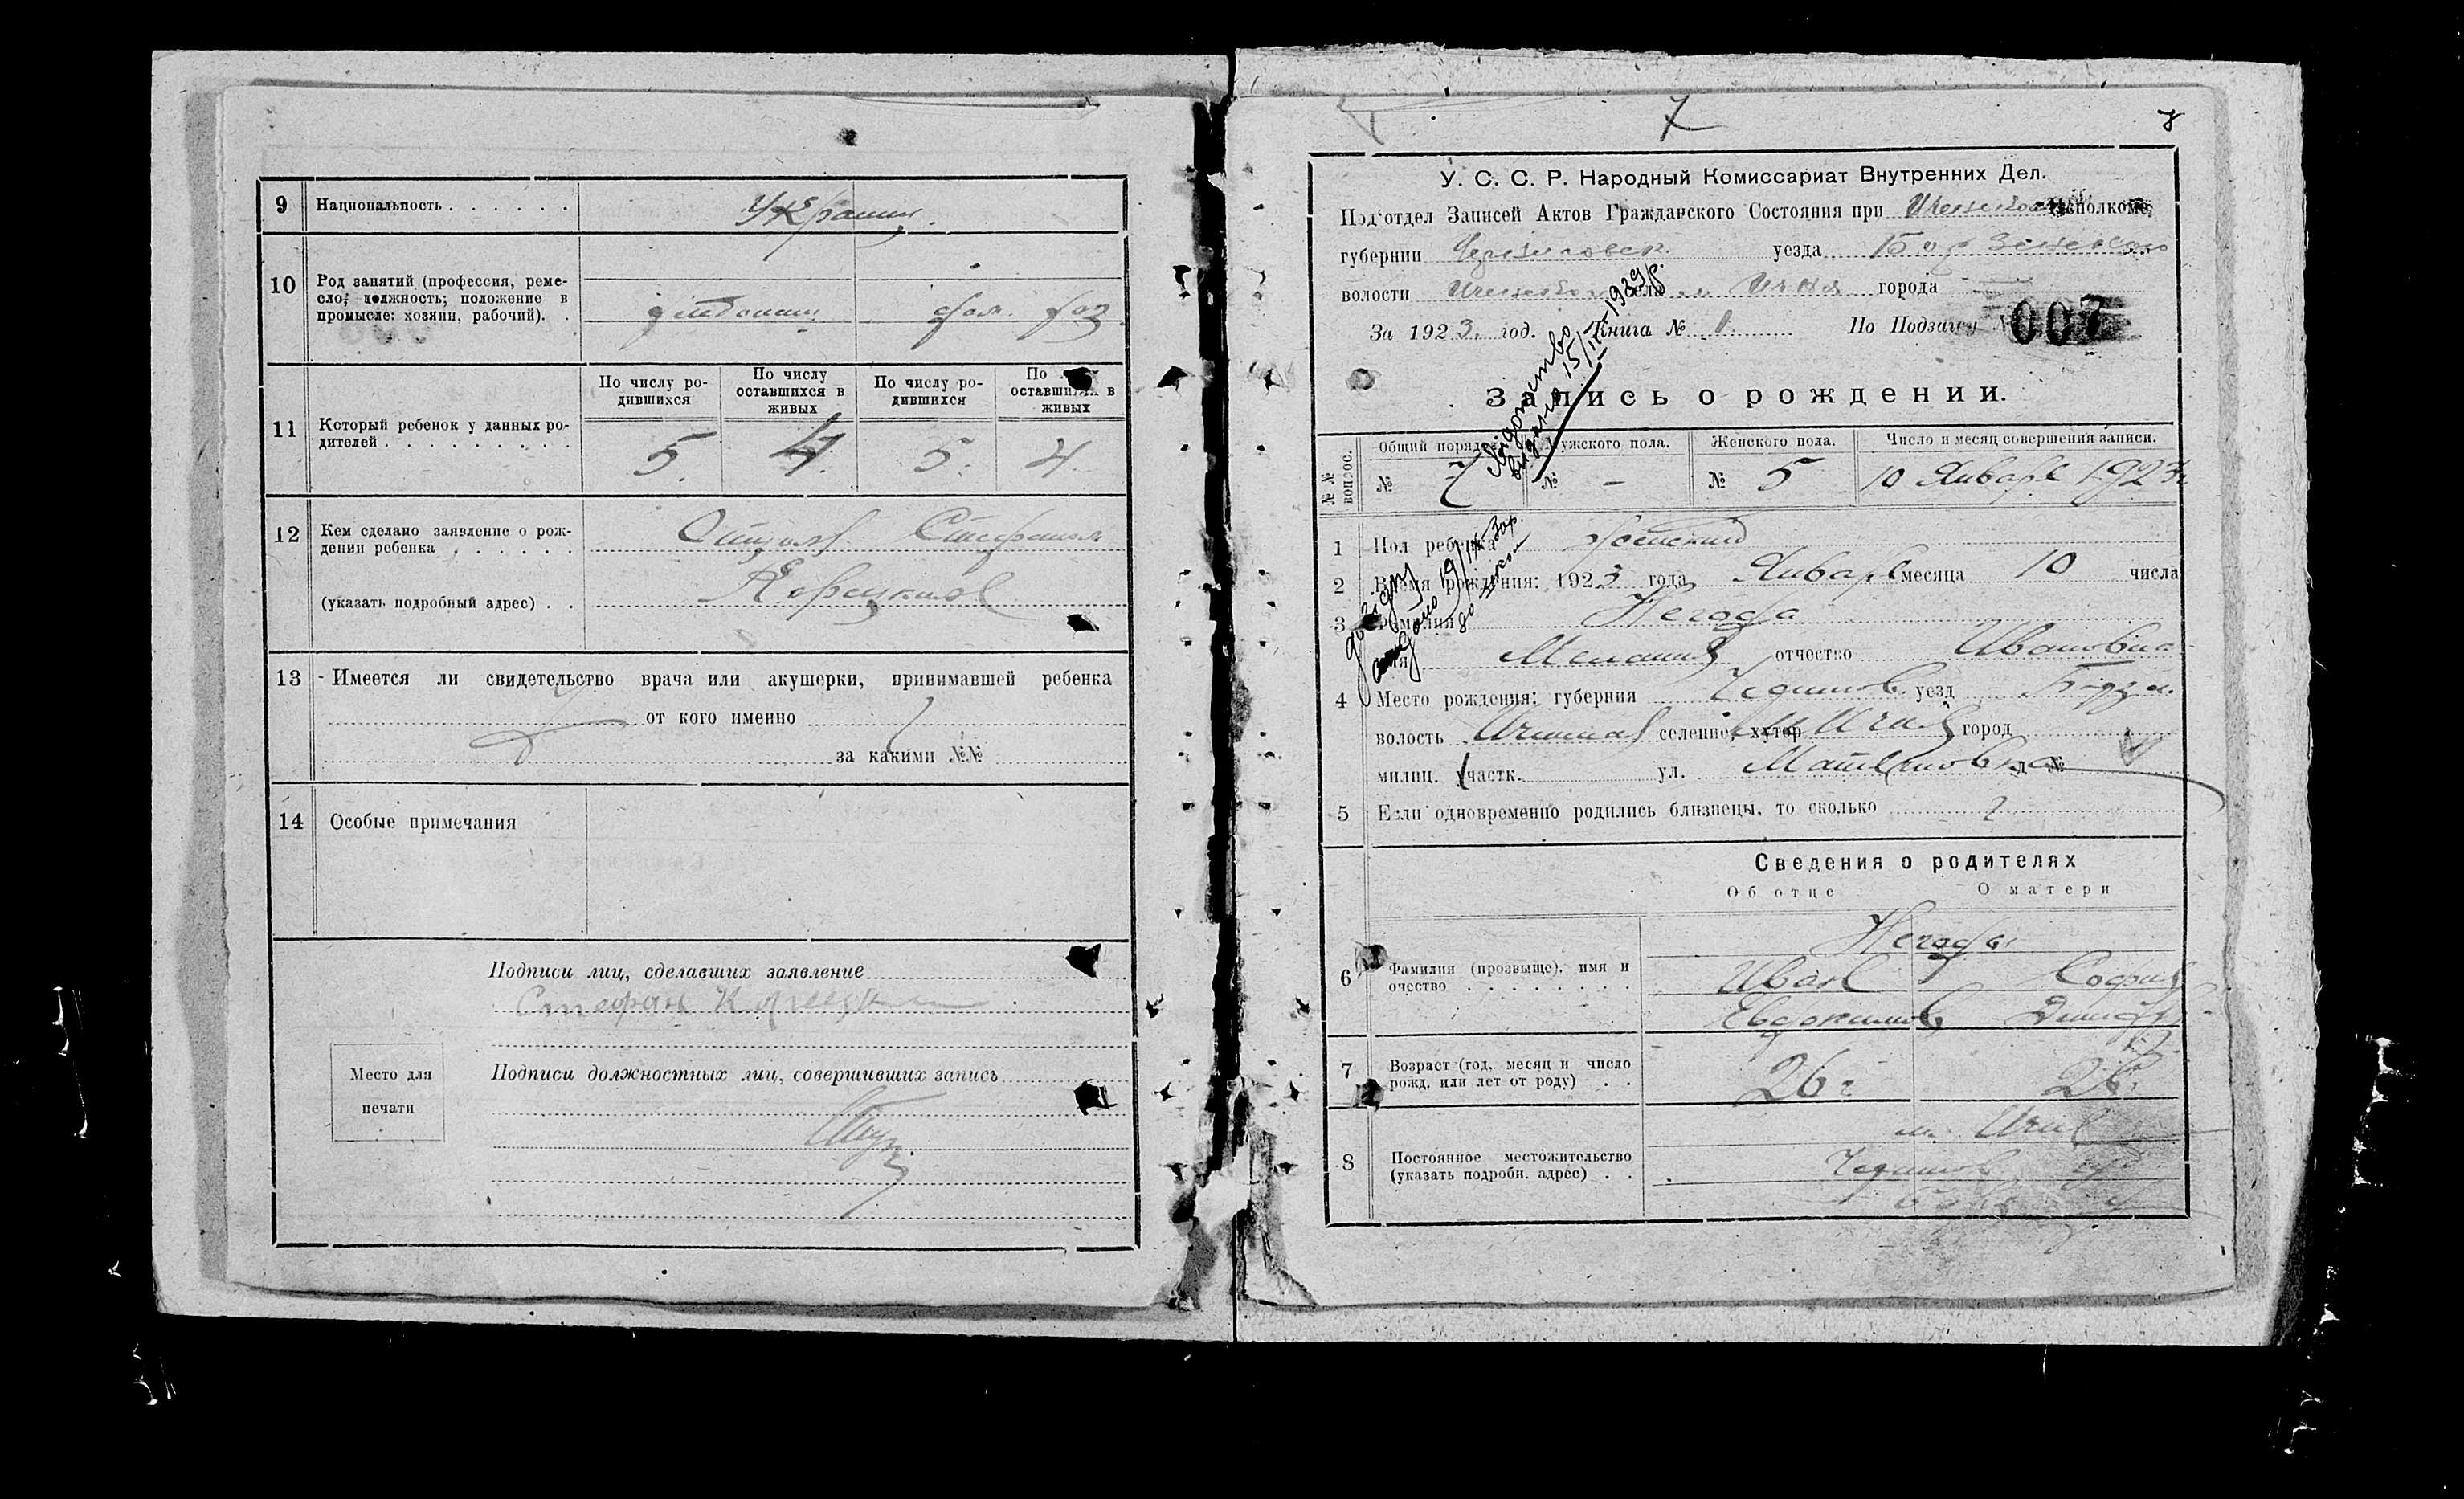 9 Национальность . . . . . . Украинц.
10 Род занятий (профессия, реме-
сло, должность; положение в
промысле: хозяин, рабочий). .
дом. хоз
11 Который ребенок у данных ро-
дителей . . . . . . . . .
По числу ро-
дившихся
По числу
оставшихся в
живых
По числу ро-
дившихся
По
оставшихся в
живых
5. 4. 5. 4.
12 Кем сделано заявление о рож-
дении ребенка . . . . . .
(указать подробный адрес) . .
13 Имеется ли свидетельство врача или акушерки, принимавшей ребенка
от кого именно
за какими №№
14 Особые примечания
Подписи лиц, сделавших заявление
Стефан
Место для
печати
Подписи должностных лиц, совершивших запись
7
У. С. С. Р. Народный Комиссариат Внутренних Дел.
Под‘отдел Записей Актов Гражданского Состояния при исполкоме,
губернии уезда
волости села м Ичня города
За 1923. год. Книга № 1. По Подзагсу № 007
Свідоцтво
видано 15/IV-1939р.
Запись о рождении.
№№ вопрос.
Общий порядок Мужского пола. Женского пола. Число и месяц совершения записи.
№ 7 № - № 5 10 Января 1923г.
довідку
19/IV
до школи
1 Пол ребенка женский
2 Время рождения: 1923 года, Января месяца 10 числа
3 Фамилия Негода
имя Мелания отчество Ивановна
4 Место рождения: губерния Чернигов. уезд Бор.зн.
волость селение, хутор м Ичня город
милиц. участк. ул. д. №
5 Если одновременно родились близнецы, то сколько
Сведения о родителях
Об отце О матери
6 Фамилия (прозвыще), имя и
очество . . . . . . . .
Негоды
Иван София
Евдокимов
7 Возраст (год, месяц и число
рожд. или лет от роду) . .
26г 26г.
8 Постоянное местожительство
(указать подробн. адрес) . .
м. Ичня
Чернигов губ